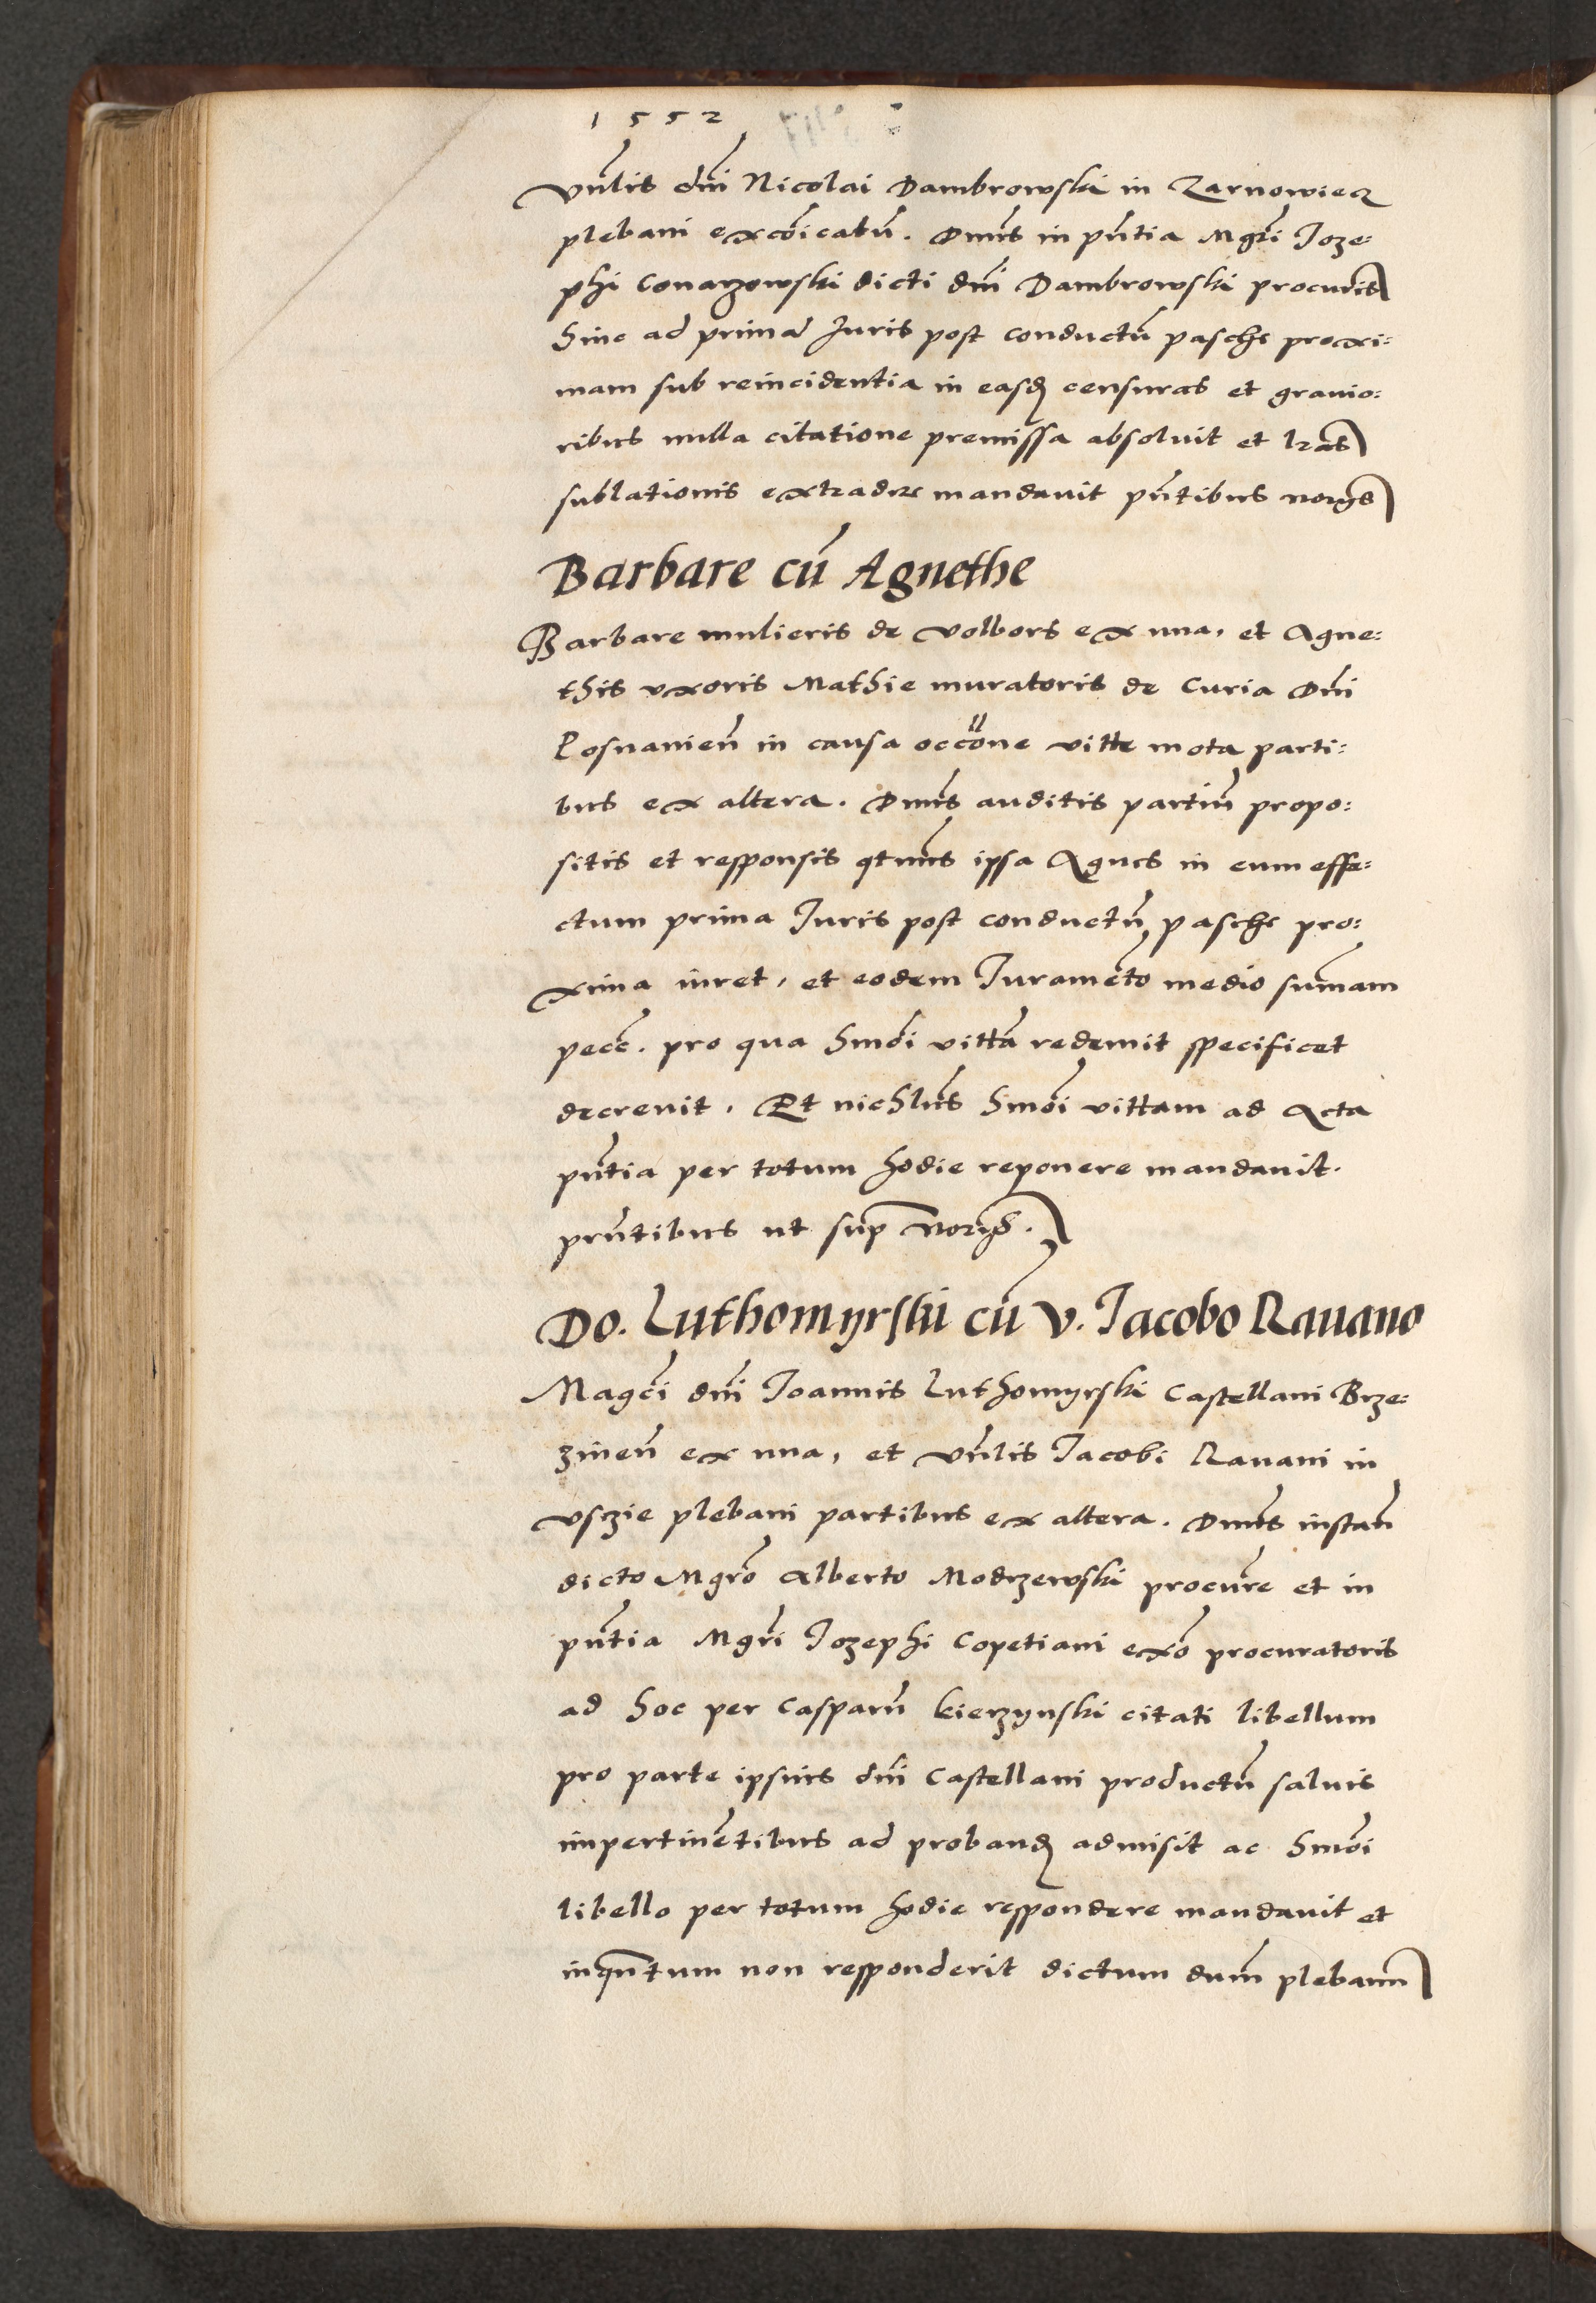 1552
vnlis dni Nicolai Dambrowski in Zarnowiecz
plebani excoicatu. Dnus in pntia Mgri Joze:
phi Conarzowski dicti dni Dambrowski procuris
hinc ad prima Juris post conductu pasche proxi:
mam sub reincidentia in easdem censuras et grauio:
ribus nulla citatione premissa absoluit et lras
sublationis extradere mandauit pntibus
Barbare cu Agnethe
Barbare mulieris de Volbors ex una, et Agne:
this vxoris Mathie muratoris de Curia Dni
Posnanien in causa occone vitte mota parti:
bus ex altera. Dnus auditis partiu propo:
sitis et responsis qtnus ipsa Agnes in eum effe:
ctum prima Juris post conductu pasche pro:
xima iuret, et eodem Jurameto medio sumam
pecc. pro qua hmoi vitta redemit specificet
decreuit. Et nichlus hmoi vittam ad Acta
pntia per totum hodie reponere mandauit.
prntibus ut sup
Do. Luthomyrski cu v. Jacobo Rauano
Magci dni Joannis Luthomyrski Castellani Brze:
zinen ex una, et vnlis Jacobi Rauani in
vszie plebani partibus ex altera. Dnus instan
dicto Mgro Alberto Modrzewski procure et in
pntia Mgri Jozephi Copetiani exo procuratoris
ad hoc per Casparu kierzynski citati libellum
pro parte ipsius dni Castellani productu saluis
impertinetibus ad proband admisit ac hmoi
libello per totum hodie respondere mandauit et
inqntum non responderit dictum dum plebanu